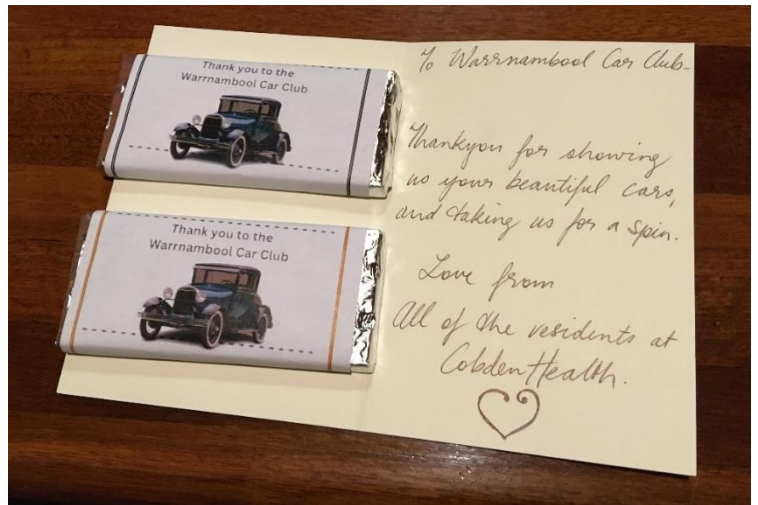 Thank you to the
Warrnambool Car Club
Thank you to the
Warrnambool Car Club
To Warrnambool Car Club-
Thankyou for showing
us your beautiful cars,
and taking us for a spin.
Love from
All of the residents at
CobdenHealth.